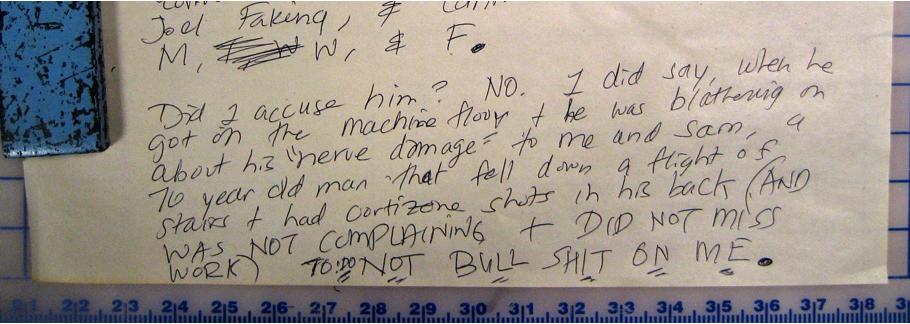 Joel Faking, &
M, W, & F.
Did I accuse him? NO. I did say, when he
got on the machine floor + he was blathering on
about his "nerve damage" to me and Sam, a
70 year old man that fell down a flight of
stairs + had cortizone shots in his back (AND
WAS NOT COMPLAINING + DID NOT MISS
WORK) TO: DO NOT BULL SHIT ON ME.
2|1 2|2 2|3 2|4 2|5 2|6 2|7 2|8 2|9 3|0 3|1 3|2 3|3 3|4 3|5 3|6 3|7 3|8